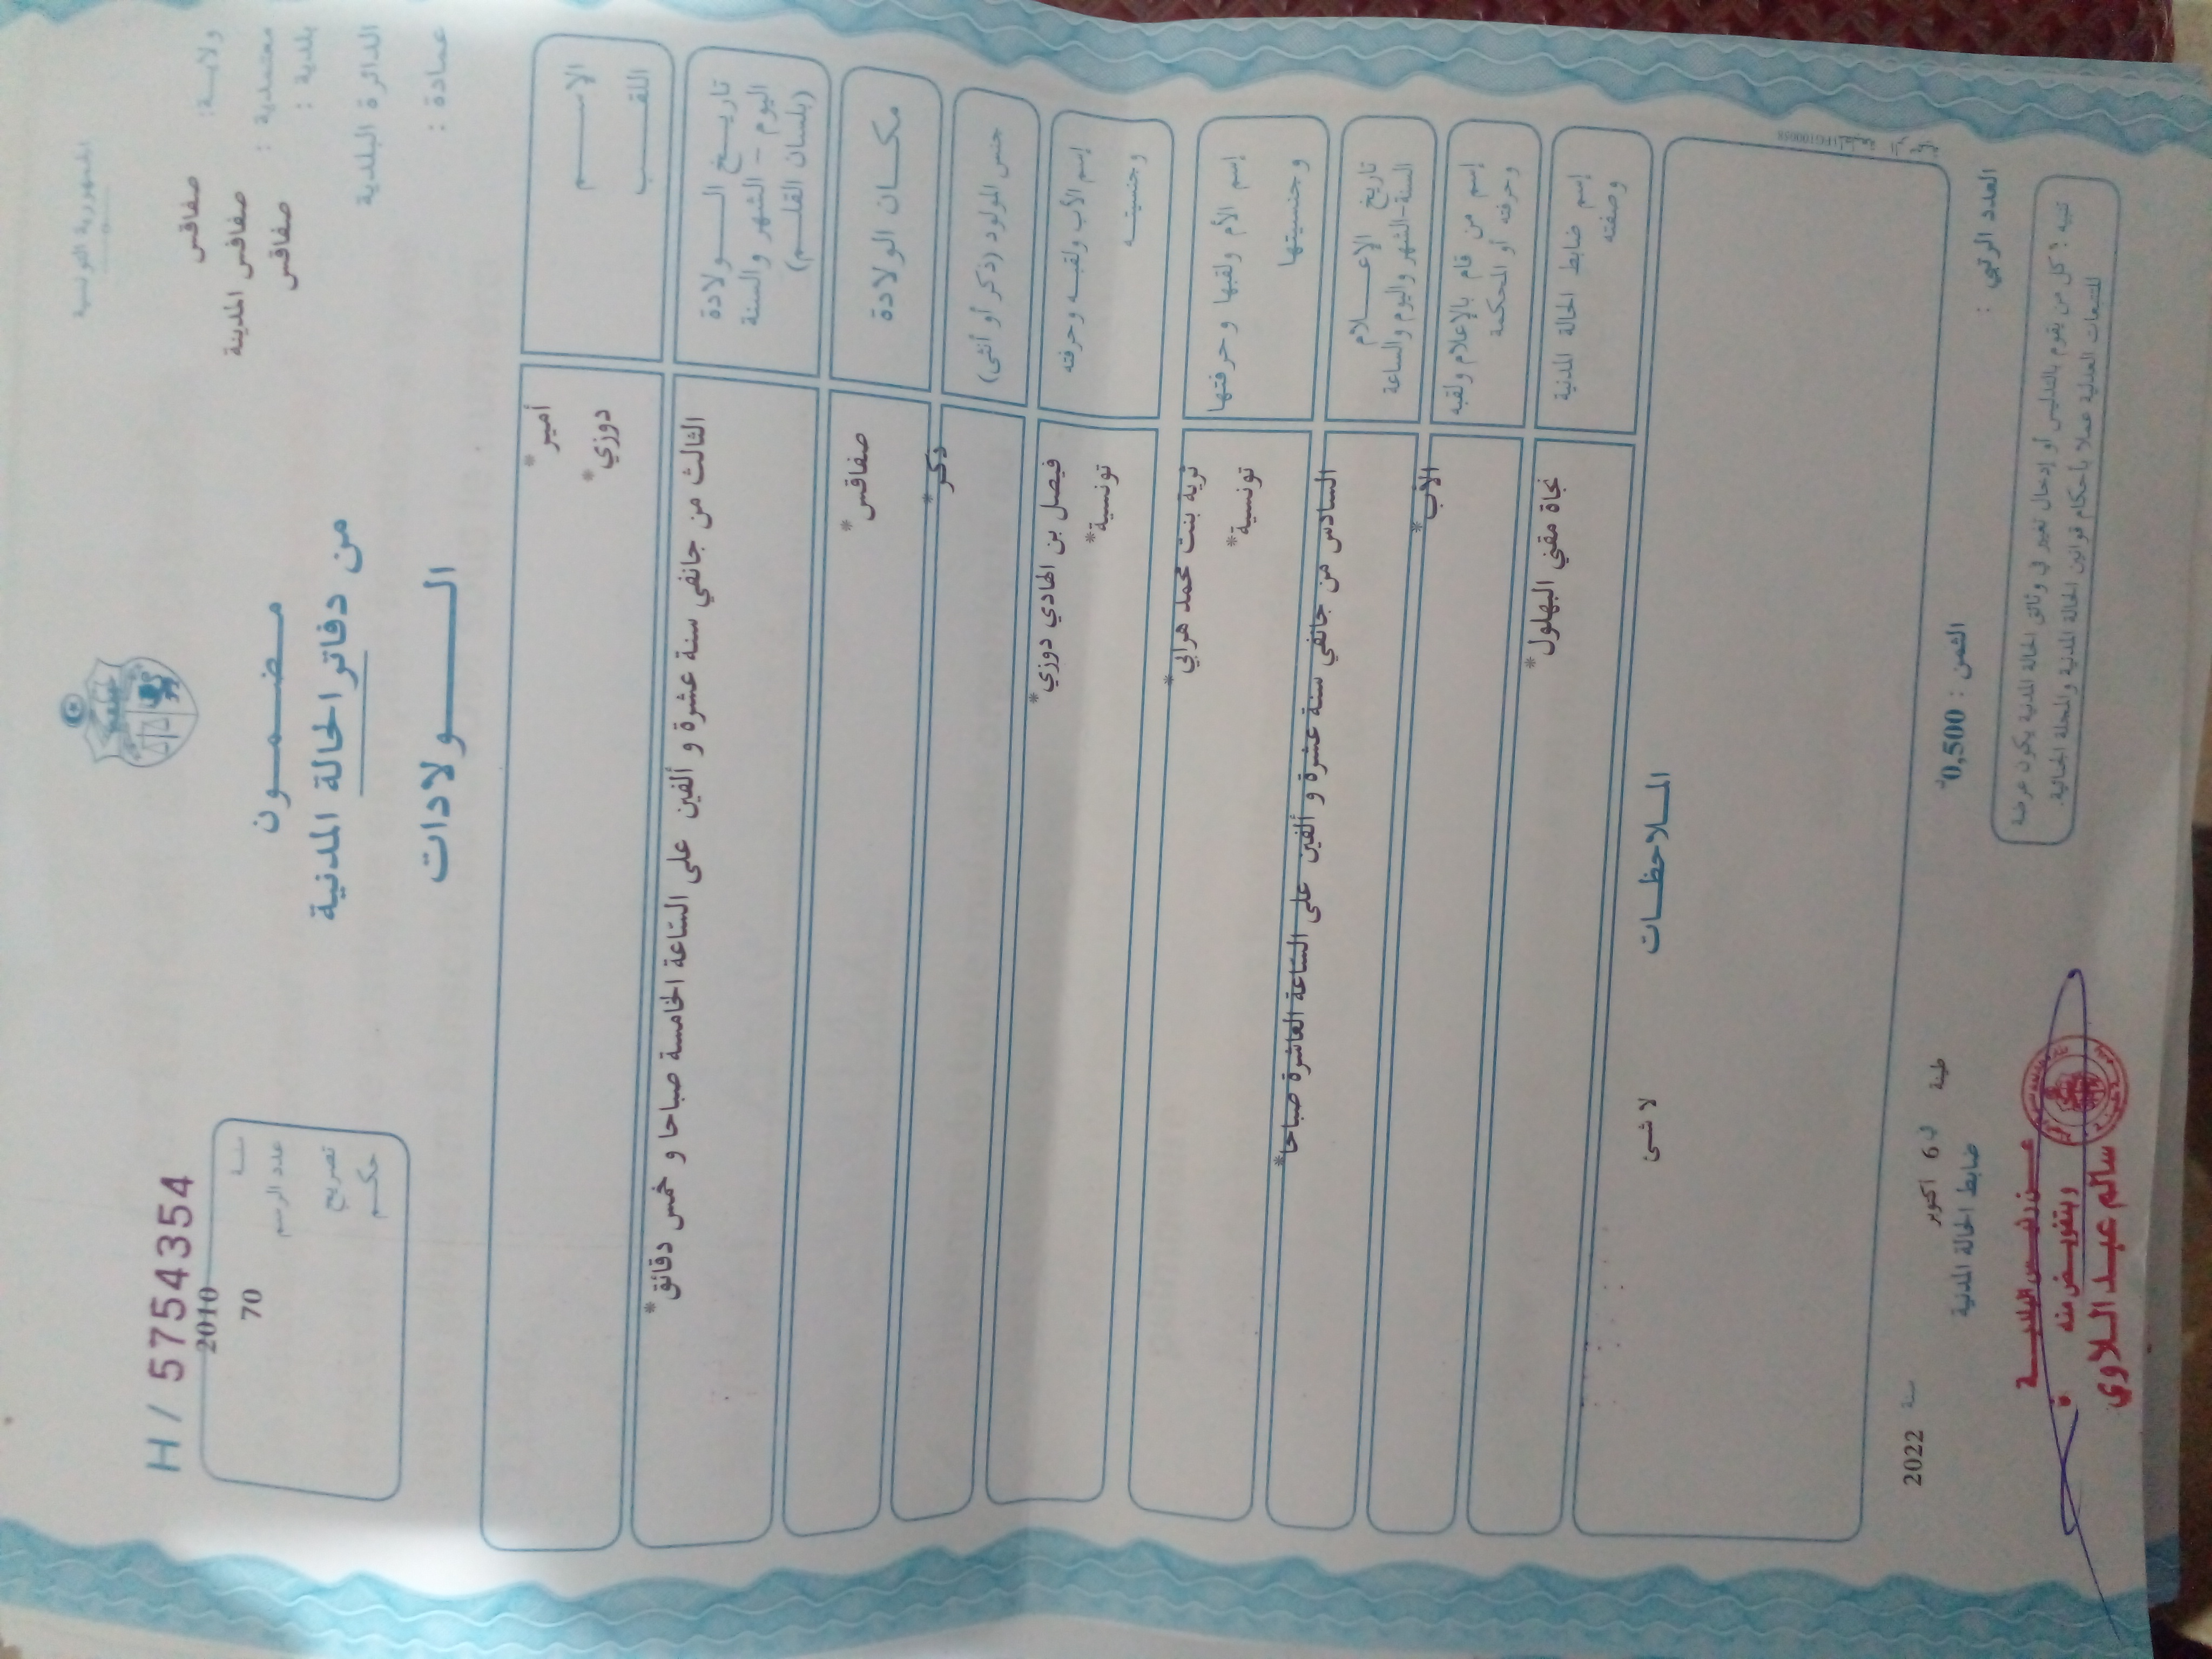 الجمهورية التونسية
ولايــة: صفاقس
معتمدية : صفاقس المدينة
بلدية : صفاقس
الدائرة البلدية
عمادة :
H / 5754354
سنة 2010
عدد الرسم 70
تصريح
حكم
مـضـمـون
من دفاتر الحالة المدنية
الـولادات
الاسـم أمير*
اللقـب دوزي*
تاريـخ الـولادة
اليوم - الشهر والسنة
(بلسان القلـم)
الثالث من جانفي سنة عشرة و ألفين على السّاعة الخامسة صباحا و خمس دقائق*
مكـان الولادة صفاقس*
جنس المولود (ذكر أو أنثى) ذكر*
إسم الأب ولقبـه وحرفته فيصل بن الهادي دوزي*
وجنسيتـه تونسية*
إسم الأم ولقبها وحرفتها ثرية بنت محمد هرابي*
وجنسيتها تونسية*
تاريخ الإعـلام
السنة-الشهر واليوم والساعة
السادس من جانفي سنة عشرة و ألفين على السّاعة العاشرة صباحا*
إسم من قام بالإعلام ولقبه
وحرفته أو المحكمة
الأب*
إسم ضابط الحالة المدنية
وصفته
نجاة مقني البهلول*
الملاحظـات
لا شئ
العدد الرتبي :
الثمن : 0,500د
طينة في 6 أكتوبر سنة 2022
ضابط الحالة المدنية
تنبيه : كل من يقوم بالتدليس أو إدخال تغيير في وثائق الحالة المدنية يكون عرضة
للتتبعات العدلية عملا بأحكام قوانين الحالة المدنية والمجلة الجنائية.
عـن رئيـس البلديـــة
وبتفويـض منه
سالم عبـد الـلاوي